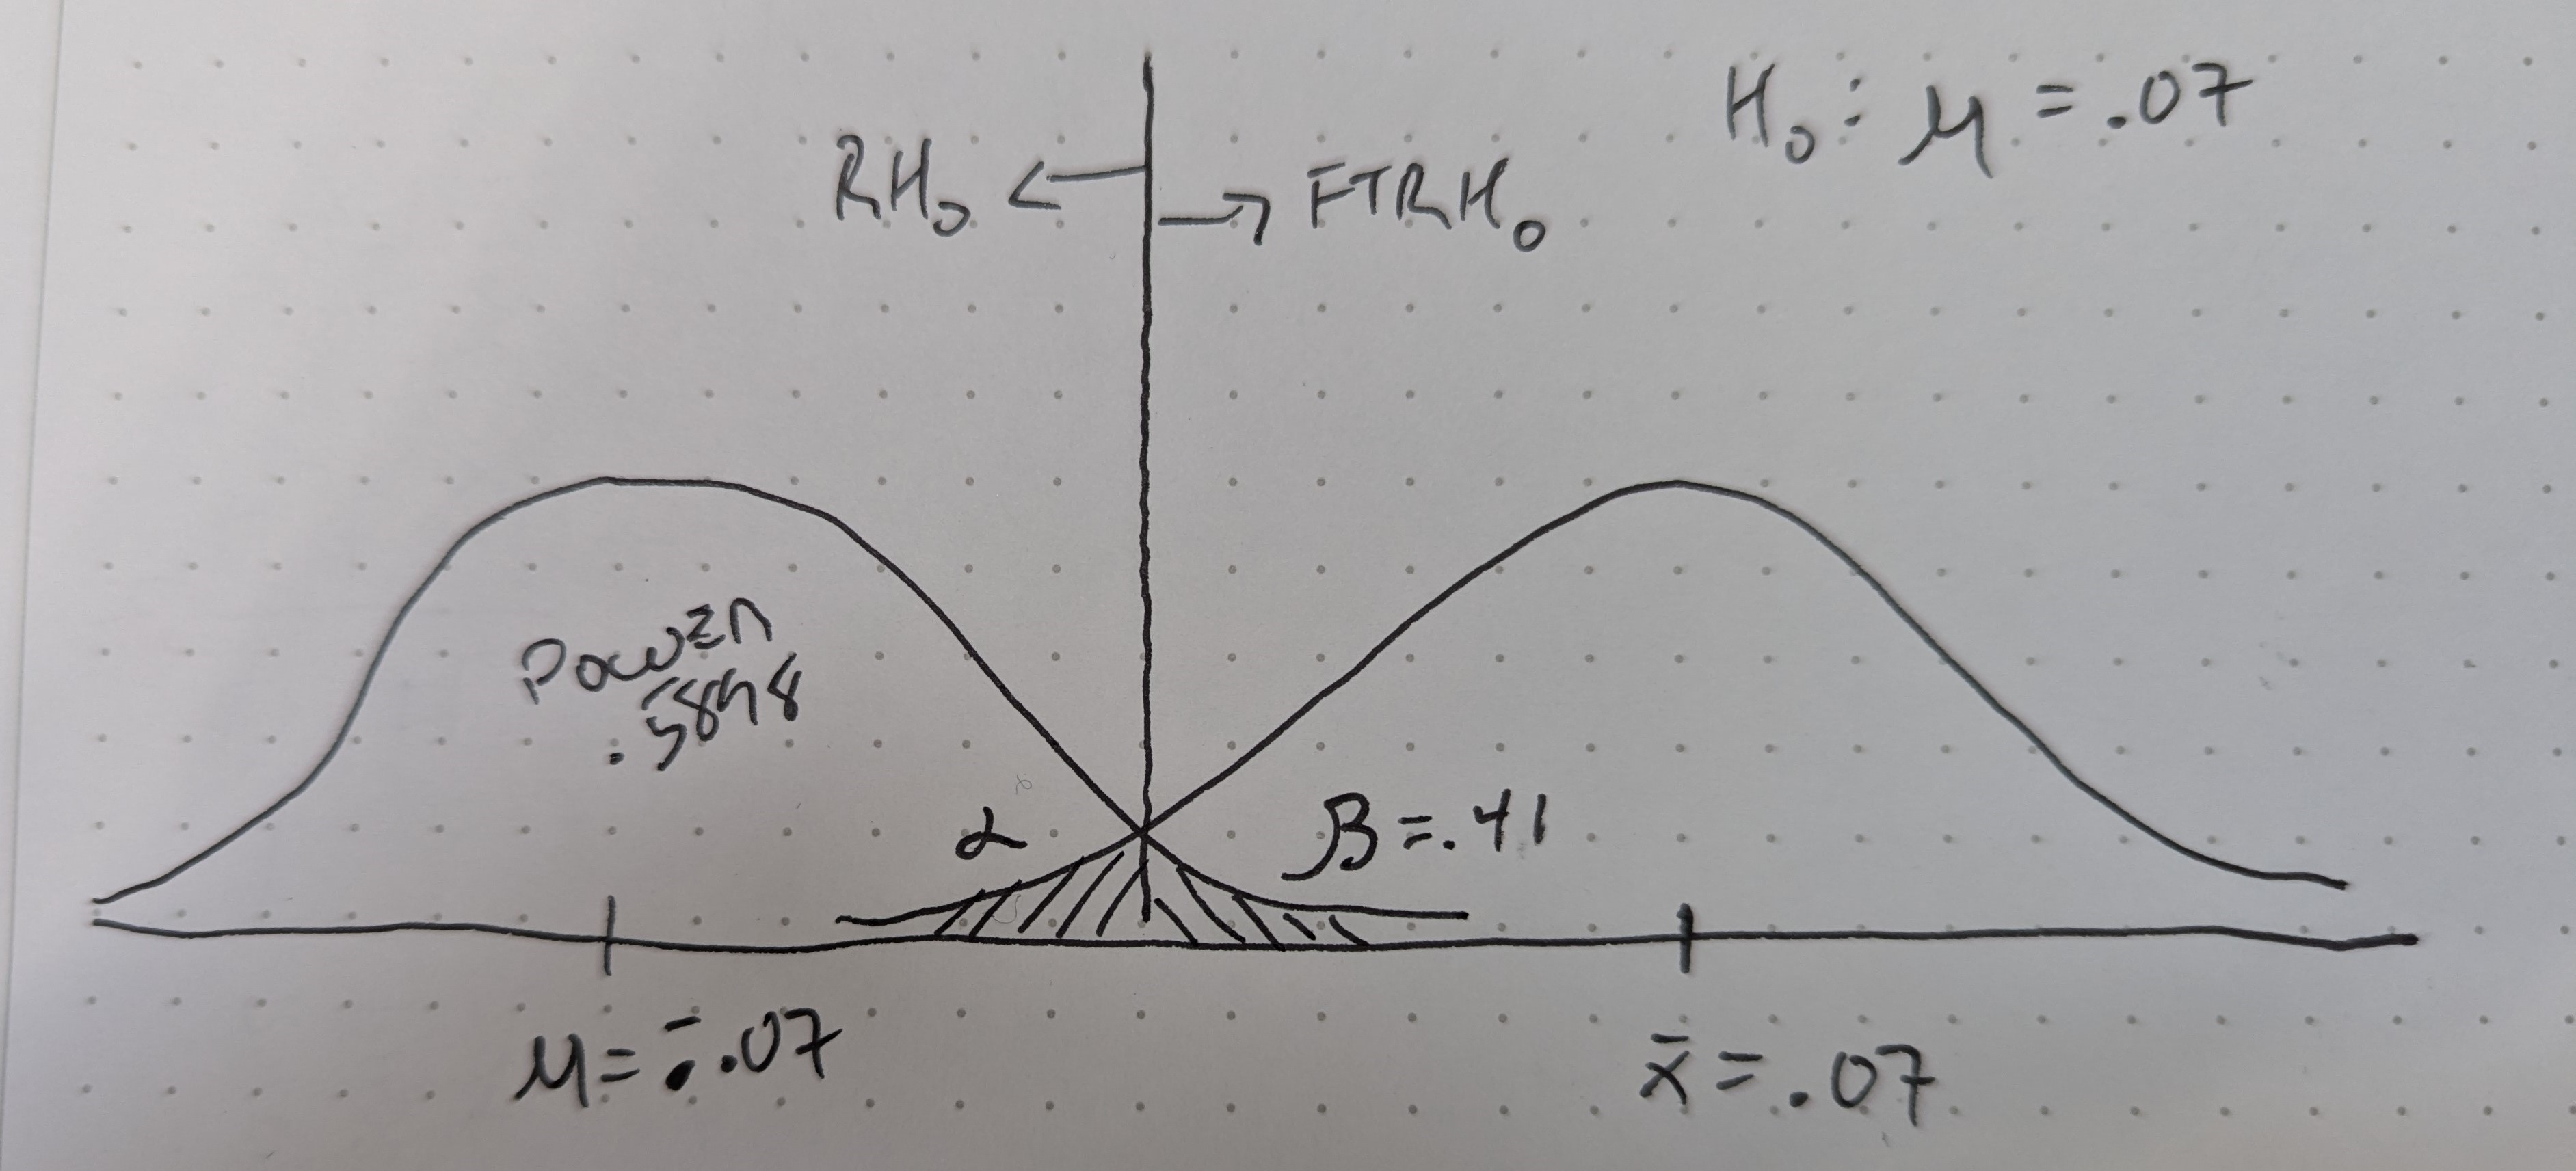 H₀: μ = .07
RH₀ ← → FTRH₀
Power
.5898
α
β = .41
μ = -.07
x̄ = .07